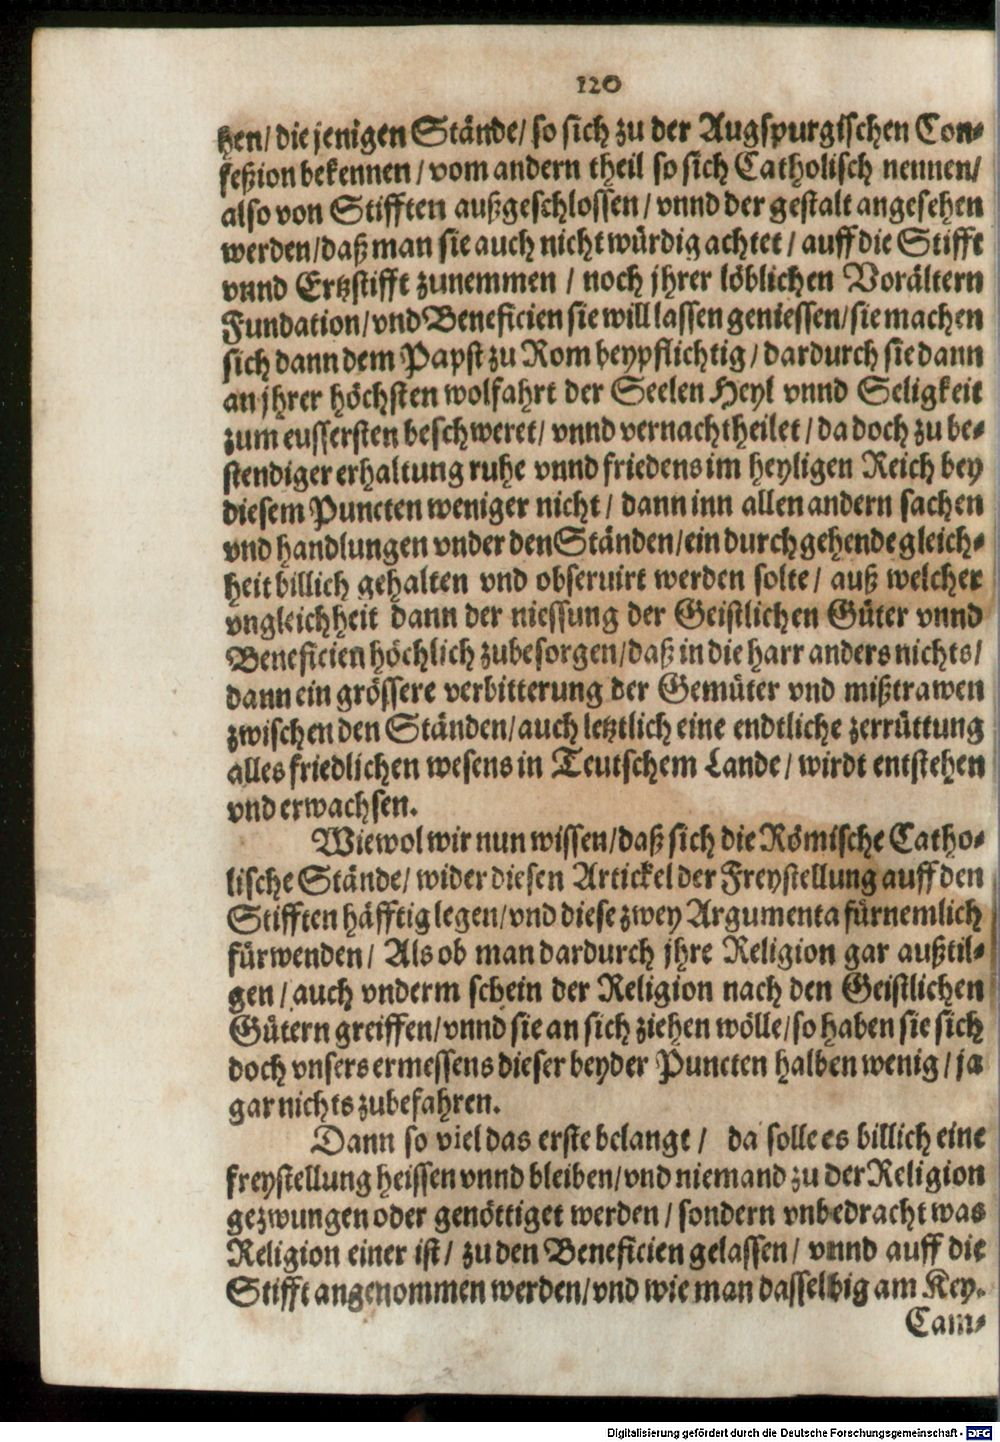 120
hen/ die jenigen Stände/ so sich zu der Augspurgischen Con-
feßion bekennen/ vom andern theil so sich Catholisch nennen/
also von Stifften außgeschlossen/ vnnd der gestalt angesehen
werden/ daß man sie auch nicht würdig achtet/ auff die Stifft
vnnd Ertzstifft zunemmen/ noch jhrer löblichen Vorältern
Fundation/ vnd Beneficien sie will lassen geniessen/ sie machen
sich dann dem Papst zu Rom beypflichtig/ dardurch sie dann
an jhrer höchsten wolfahrt der Seelen Heyl vnnd Seligkeit
zum eussersten beschweret/ vnnd vernachtheilet/ da doch zu be-
stendiger erhaltung ruhe vnnd friedens im heyligen Reich bey
diesem Puncten weniger nicht/ dann inn allen andern sachen
vnd handlungen vnder den Ständen/ ein durchgehende gleich-
heit billich gehalten vnd obseruirt werden solte/ auß welcher
vngleichheit dann der niessung der Geistlichen Güter vnnd
Beneficien höchlich zubesorgen/ daß in die harr anders nichts/
dann ein grössere verbitterung der Gemüter vnd mißtrawen
zwischen den Ständen/ auch letztlich eine endtliche zerrüttung
alles friedlichen wesens in Teutschem Lande/ wirdt entstehen
vnd erwachsen.
Wiewol wir nun wissen/ daß sich die Römische Catho-
lische Stände/ wider diesen Artickel der Freystellung auff den
Stifften häfftig legen/ vnd diese zwey Argumenta fürnemlich
fürwenden/ Als ob man dardurch jhre Religion gar außtil-
gen/ auch vnderm schein der Religion nach den Geistlichen
Gütern greiffen/ vnnd sie an sich ziehen wölle/ so haben sie sich
doch vnsers ermessens dieser beyder Puncten halben wenig/ ja
gar nichts zubefahren.
Dann so viel das erste belangt/ da solle es billich eine
freystellung heissen vnnd bleiben/ vnd niemand zu der Religion
gezwungen oder genöttiget werden/ sondern vnbedracht was
Religion einer ist/ zu den Beneficien gelassen/ vnnd auff die
Stifft angenommen werden/ vnd wie man dasselbig am Key.
Cam-
Digitalisierung gefördert durch die Deutsche Forschungsgemeinschaft - DFG